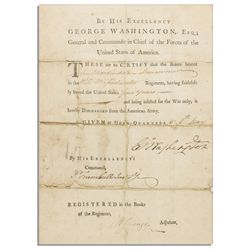 BY HIS EXCELLENCY
GEORGE WASHINGTON, ESQ;
General and Commander in Chief of the Forces of the
United States of America.
THESE are to CERTIFY that the Bearer hereof
in the Regiment, having faithfully
served the United States
and being inlisted for the War only, is
hereby DISCHARGED from the American Army.
GIVEN at HEAD-QUARTERS the
G Washington
By HIS EXCELLENCY'S
Command,
J Trumbull Jun
REGISTERED in the Books
of the Regiment,
Adjutant,